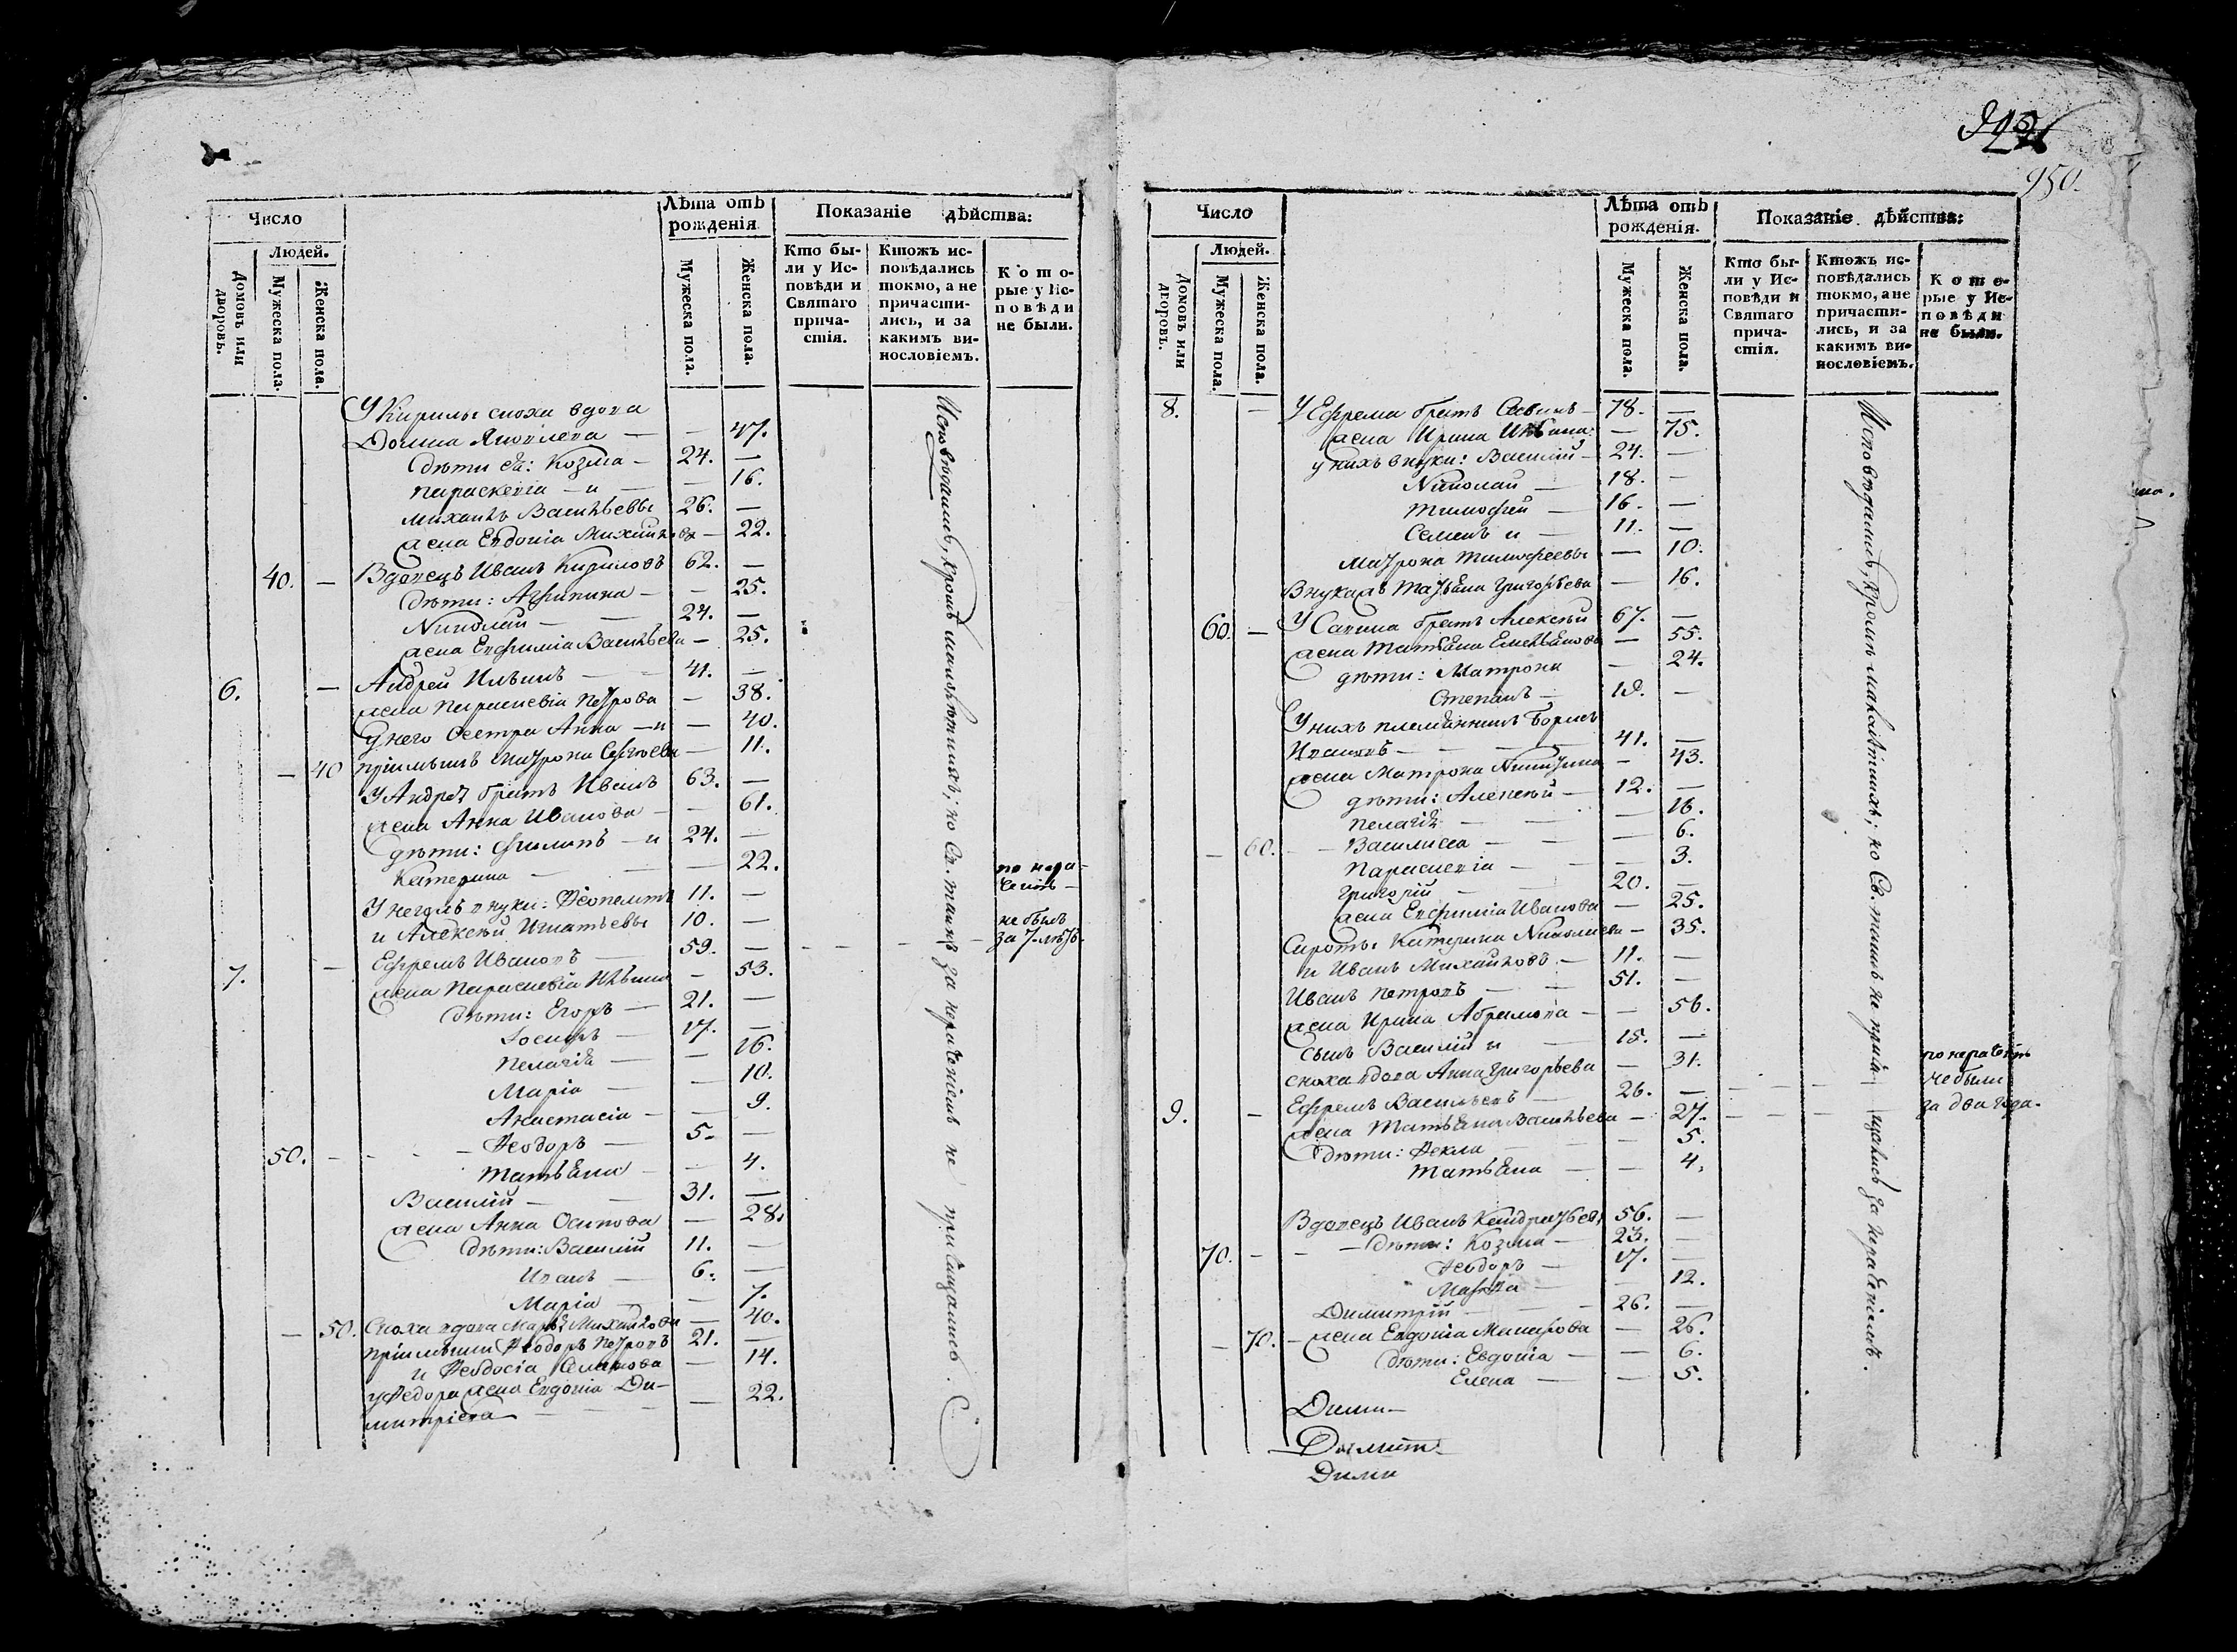 950.
Число
Лѣта отъ рожденія
Показаніе дѣйства:
Людей.
Домовъ или дворовъ.
Мужеска пола.
Женска пола.
Мужеска пола.
Женска пола.
Кто были у Исповѣди и Святаго причастія.
Ктожъ исповѣдались токмо, а не причастились, и за какимъ винословіемъ.
Которые у Исповѣди не были.
У Кирилы сноха вдова
Домна Яковлева — — 47.
дѣти ея: Козма — 24. —
Параскевія — и — — 16.
Михаилъ Васильевы 26. —
жена Евдокія Михайлова — 22.
40. — Вдовецъ Иванъ Кириловъ 62. —
дѣти: Агрипина — — 25.
Николай — — 24. —
жена Евфимія Васильева — 25.
6. — Андрей Ильинъ — 41. —
жена Параскевія Петрова — 38.
У него сестра Анна — и — 40.
— 40 пріимышъ Матрона Сергѣева — 11.
У Андрея братъ Иванъ 63. —
жена Анна Иванова — — 61.
дѣти: Филипъ — и 24. —
Катерина — — — 22.
У негожъ внуки: Феопемптъ 11. —
и Алексѣй Игнатьевы 10. —
7. — Ефремъ Ивановъ — 59. — - - - -
по нера-
ченію
не былъ
за 7. лѣтъ.
жена Параскевія Ильина — 53.
дѣти: Егоръ — 21. —
Іосифъ — 17. —
Пелагія — — 16.
Марія — — 10.
Анастасія — — 9.
50. - - - Феодоръ — 5. —
Татьяна — — 4.
Василій — — 31. —
жена Анна Осипова — 28.
дѣти: Василій 11. —
Иванъ — 6. —
Марія — — 7.
— 50. Сноха вдова Марья Михайлова — 40.
пріимыши Феодоръ Петровъ 21. —
и Феодосія — 14.
у Федора жена Евдокія Ди-
митріева — — — 22.
Исповѣдались, кромѣ малолѣтныхъ; но Св. таинъ за нераченіемъ не пріобщались.
Число
Лѣта отъ рожденія.
Показаніе дѣйства:
Людей.
Домовъ или дворовъ.
Мужеска пола.
Женска пола.
Мужеска пола.
Женска пола.
Кто были у Исповѣди и Святаго причастія.
Ктожъ исповѣдались токмо, а не причастились, и за какимъ винословіемъ.
Которые у Исповѣди не были.
8. — У Ефрема братъ Савинъ — 78. —
жена Ирина Ильина: — 75.
у нихъ внуки: Василій — 24. —
Николай — 18. —
Тимофей — 16. —
Семенъ и — 11. —
Матрона Тимофеевы — 10.
Внукажъ Татьяна Григорьева — 16.
60. — У Савина братъ Алексѣй 67. —
жена Татьяна Емельянова — 55.
дѣти: Матрона — 24.
Степанъ —  —
У нихъ племянникъ Борисъ
Ивановъ — — — 41. —
жена Матрона Никитина — 43.
дѣти: Алексѣй — 12. —
Пелагія — — — 16.
— 60. - - Василисса — — — 6.
Параскевія — — — 3.
Григорій — — 20. —
жена Евфимія Иванова — 25.
Сироты Катерина Николаева — 35.
и Иванъ Михайловъ — 11. —
Иванъ Петровъ — — 51. —
жена Ирина Абрамова — — 56.
сынъ Василій и — 15. —
сноха вдова Анна Григорьева — 31.
9. — Ефремъ Васильевъ — 26. — - - -
жена Татьяна Васильева — 27. - - -
по нераченію
не были
за два года.
дѣти: Фекла — — 5.
Татьяна — — 4.
Вдовецъ Иванъ 56. —
70. - - - дѣти: Козма — 23. —
Феодоръ — 17. —
Марфа — — 12.
Димитрій — — 26. —
— 70. — жена Евдокія Макарова — 26.
дѣти: Евдокія — — 6.
Елена — — 5.
Дими-
Димит-
Дими
Исповѣдались, кромѣ малолѣтныхъ; но Св. таинъ не пріобщались за нераченіемъ.